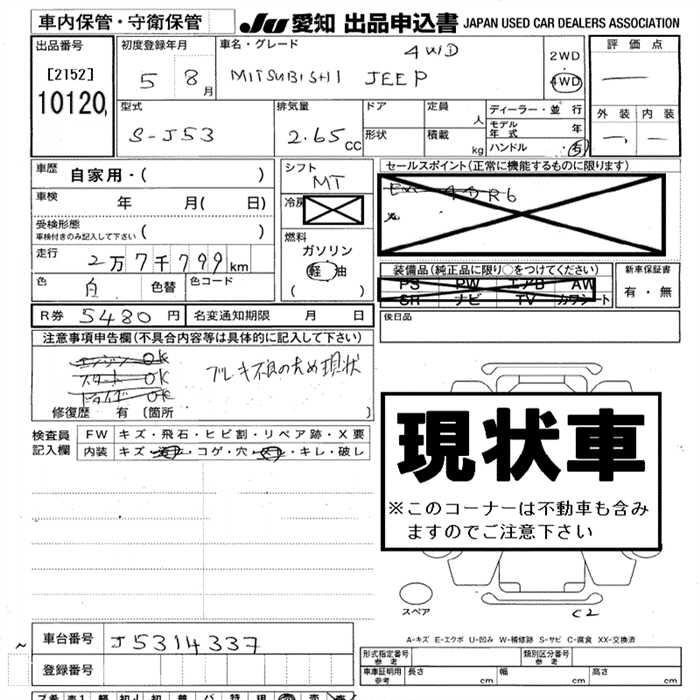 車内保管・守衛保管
JU 愛知 出品申込書 JAPAN USED CAR DEALERS ASSOCIATION
出品番号 初度登録年月 車名・グレード 4WD 2WD 評価点
[2152] 5 8月 MITSUBISHI JEEP ・ 4WD
10120
型式 排気量 ドア 定員 人 ディーラー・並行 外装 内装
S-J53 2.65cc 形状 積載 kg モデル年式 年
ハンドル 右
車歴 自家用・( )
車検 年 月( 日)
受検形態 ( )
車検付きのみ記入して下さい
走行 2万7千799km
色 白 色替 色コード
シフト MT
冷房
燃料 ガソリン
軽油
( )
セールスポイント(正常に機能するものに限ります)
4DR6
装備品(純正品に限り○をつけてください) 新車保証書
PS PW エアB AW 有・無
SR ナビ TV カワシート
後日品
R券 5480円 名変通知期限 月 日
注意事項申告欄(不具合内容等は具体的に記入して下さい)
エンジン OK
スタート OK
ドライブ OK
ブレーキ不良のため現状
修復歴 有 (箇所 )
検査員記入欄 FW キズ・飛石・ヒビ割・リペア跡・X要
内装 キズ・汚れ・コゲ・穴・スレ・キレ・破し
現状車
※このコーナーは不動車も含み
ますのでご注意下さい
スペア
C2
A-キズ E-エクボ U-凹み W-補修跡 S-サビ C-腐食 XX-交換済
車台番号 J5314337
登録番号
形式指定番号 参考 類別区分番号 参考
車庫証明用 参考 長さ cm 幅 cm 高さ cm